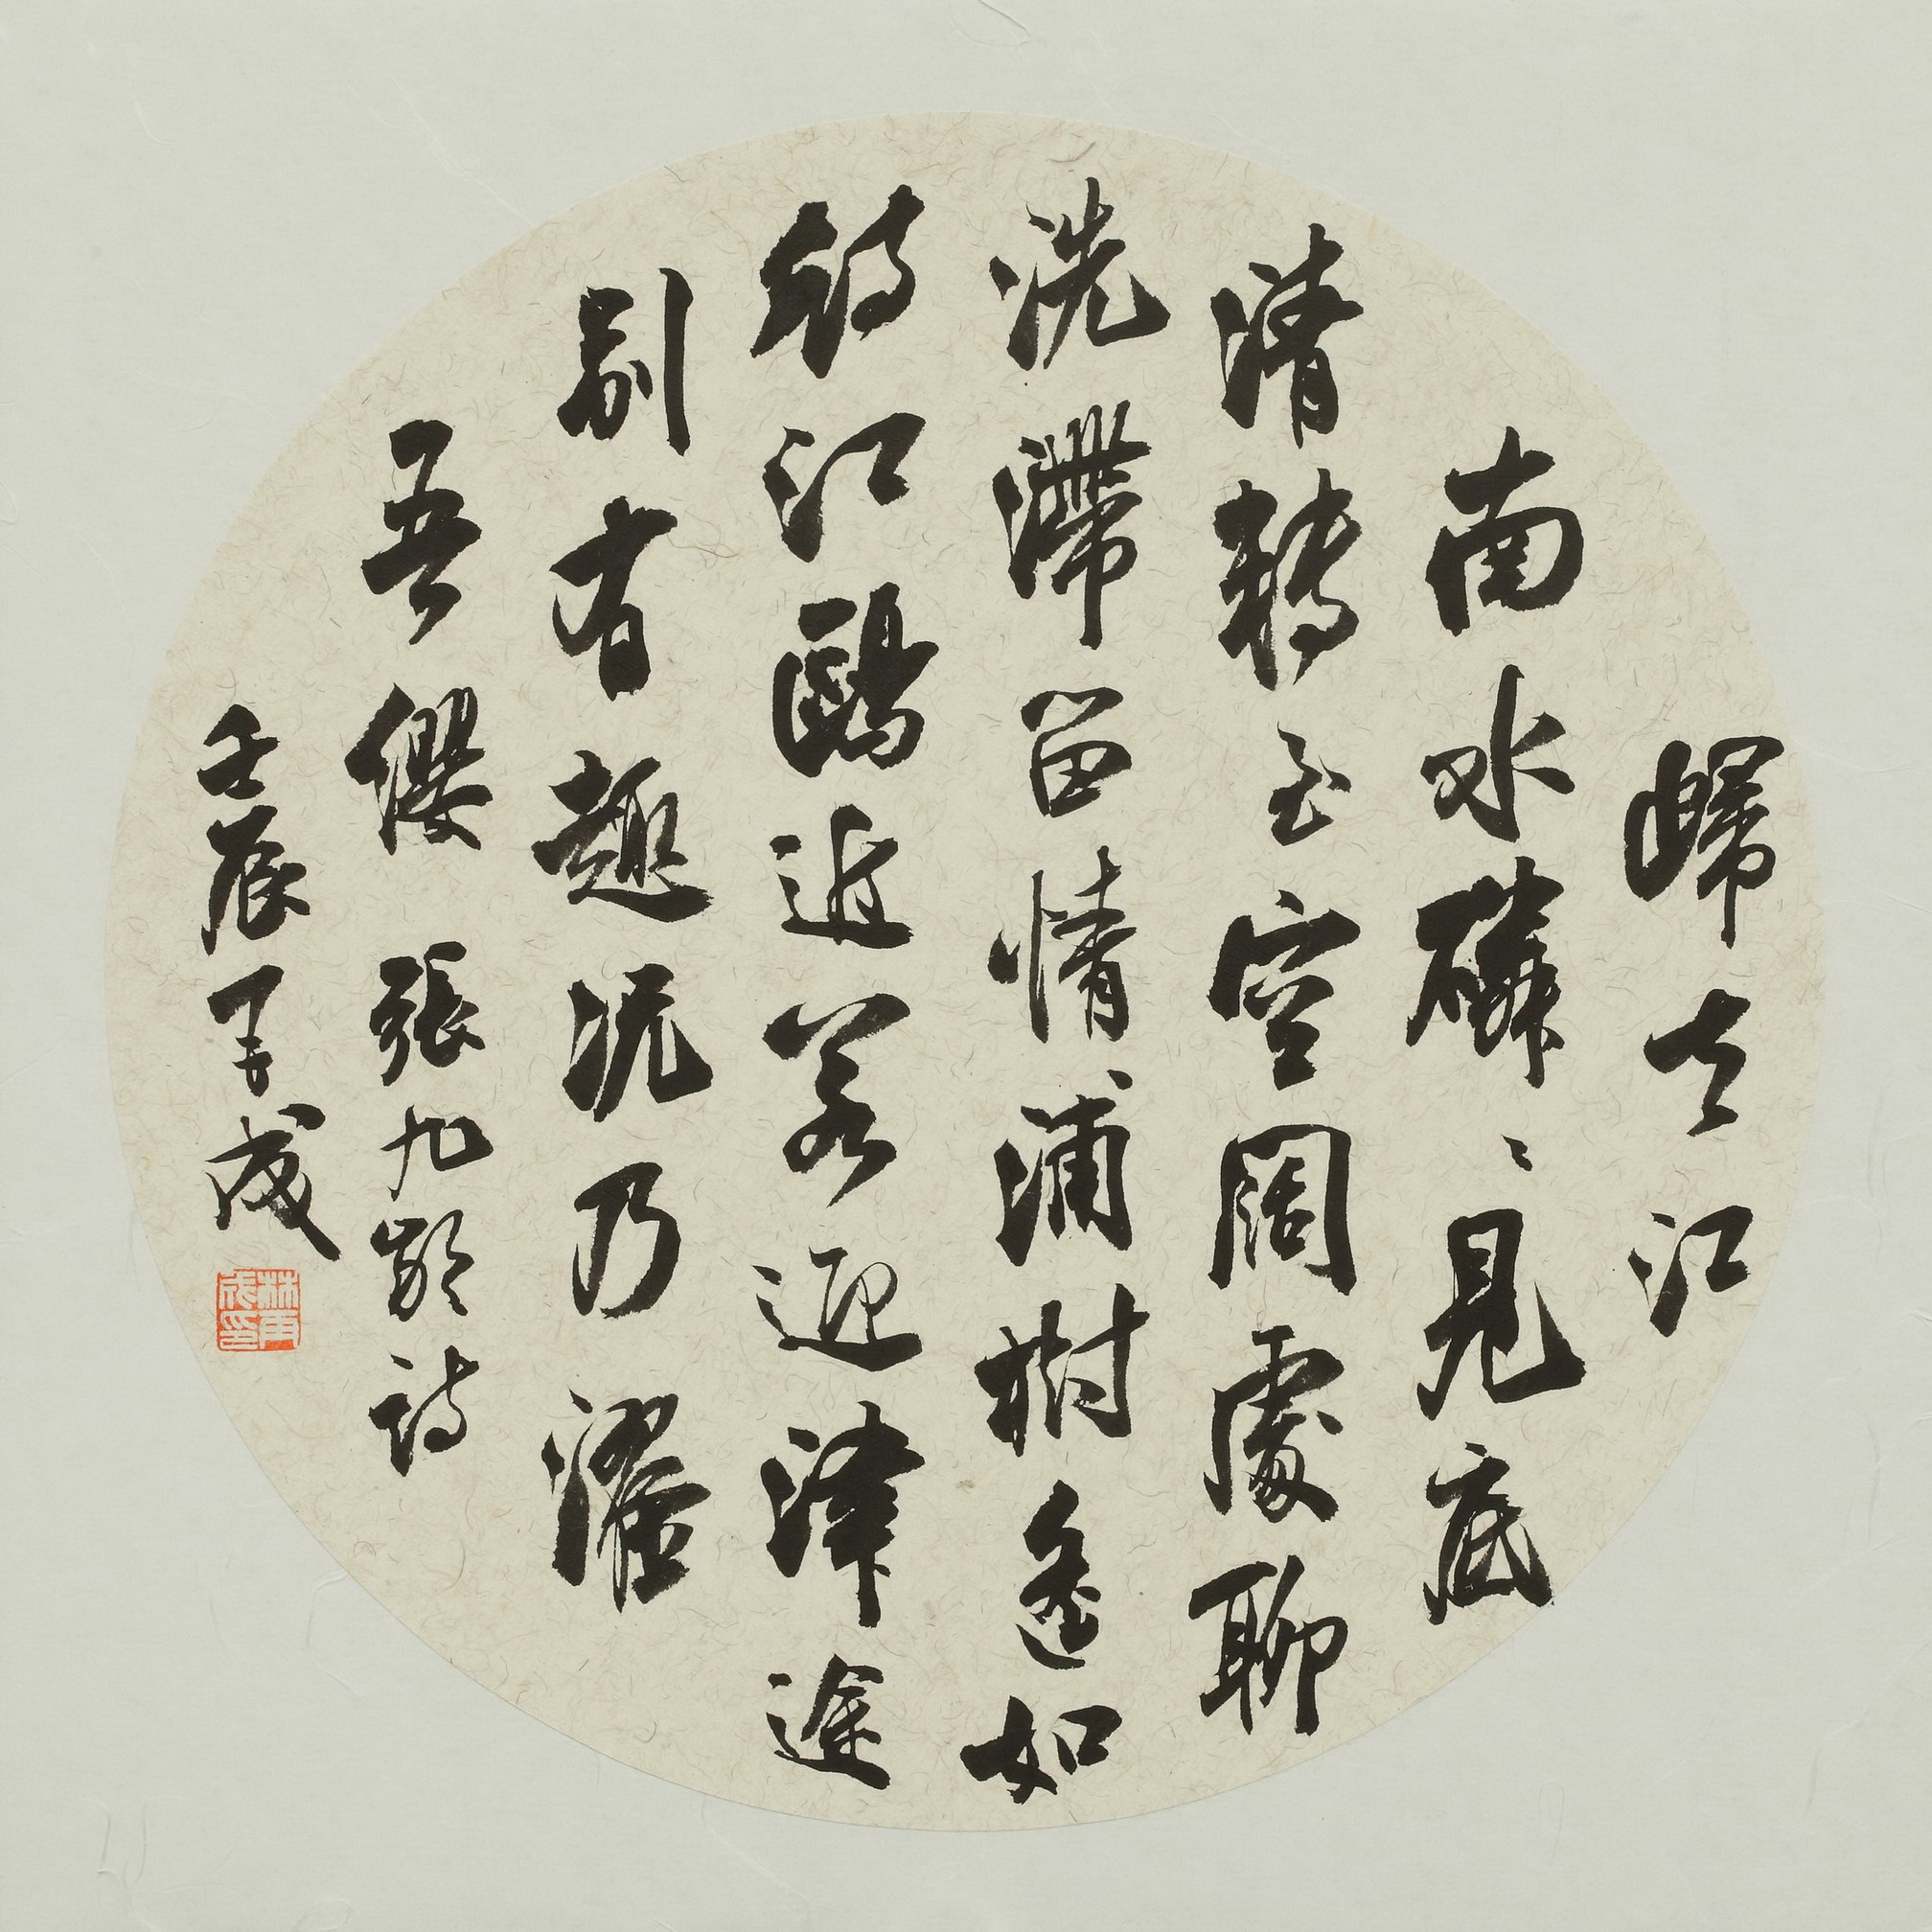 歸去江
南水磷〻見底
清轉至空闊處聊
洗滯留情浦樹遙如
待江鷗近若迎津途
別有趣況乃濯
吾纓 張九齡詩
壬辰再成
林再成印